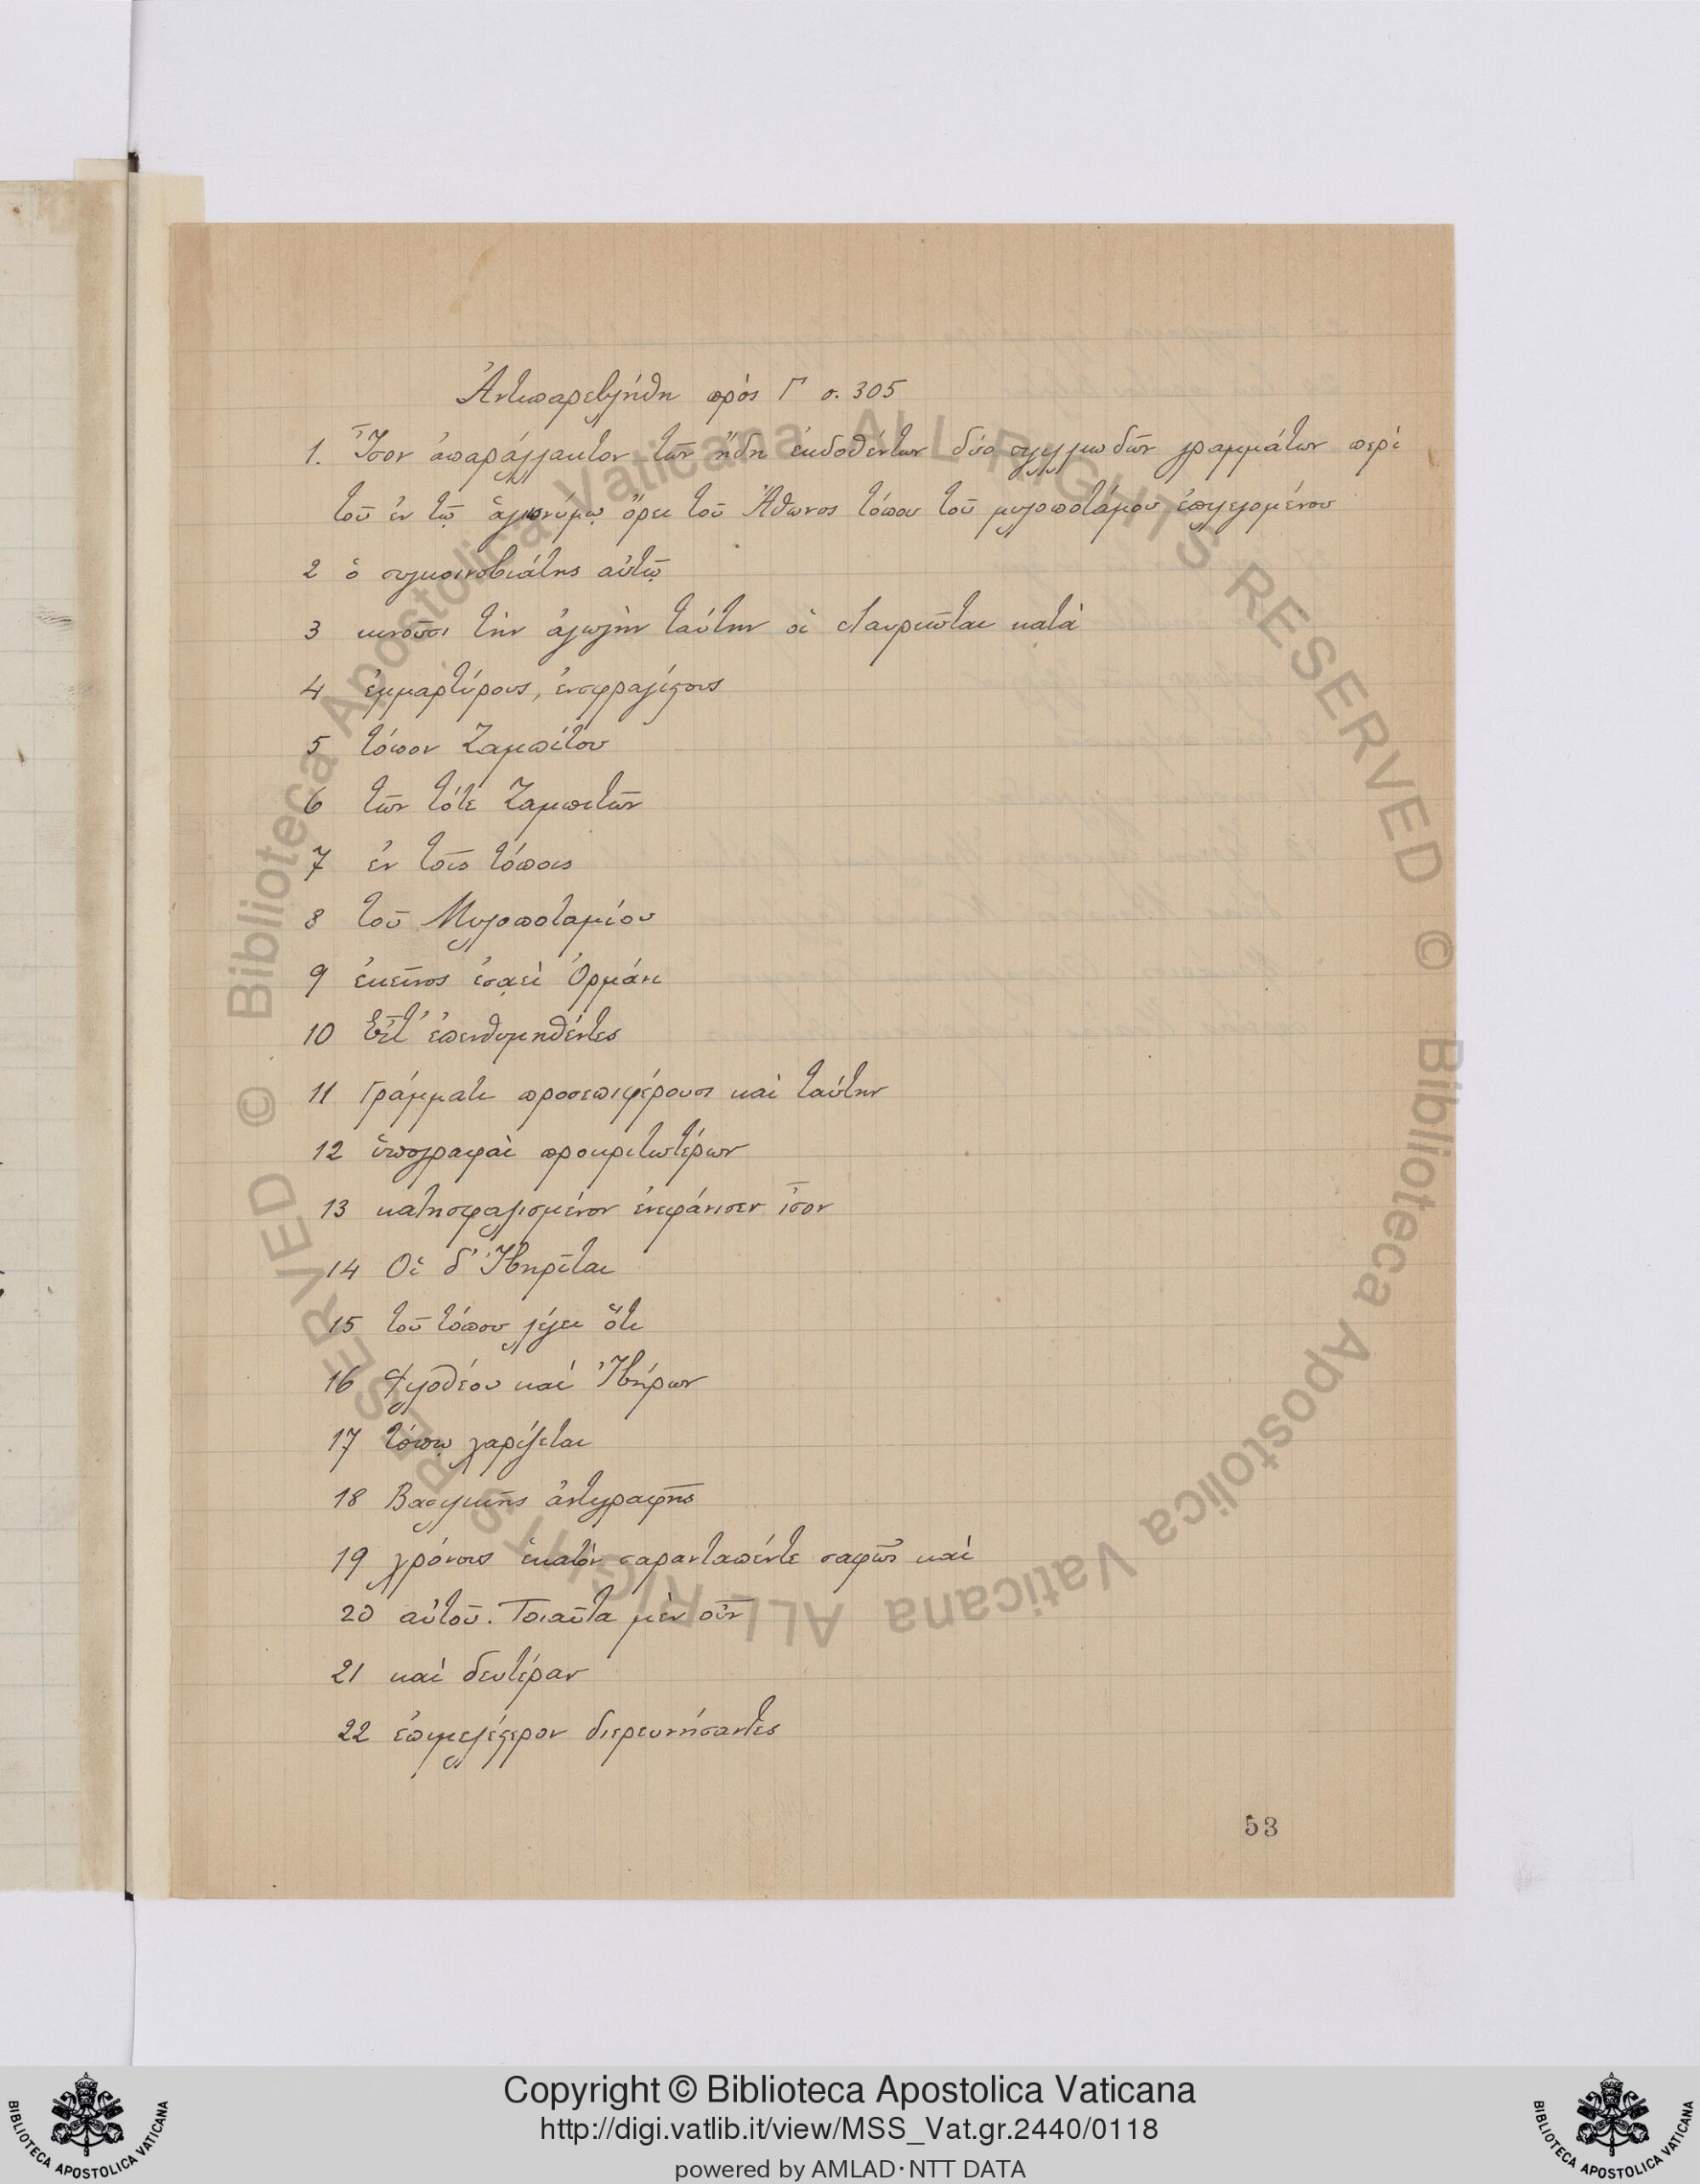 Ἀντιπαρεβλήθη πρὸς Γ σ. 305
1. Ἴσον ἀπαράλλακτον τῶν ἤδη ἐκδοθέντων δύο συγγιλιωδῶν γραμμάτων περὶ
τοῦ ἐν τῷ ἁγιωνύμῳ ὄρει τοῦ Ἄθωνος τόπου τοῦ μυλοποτάμου ἐπιλεγομένου
2 ὁ συγκοινοβιάτης αὐτῷ
3 κινοῦσι τὴν ἀγωγὴν ταύτην οἱ Λαυριῶται κατὰ
4 ἐμμαρτύρους, ἐνσφραγίστους
5 τόπον Ζαμπίτου
6 τῶν τότε Ζαμπιτῶν
7 ἐν τοῖς τόποις
8 τοῦ Μυλοποταμίου
9 ἐκεῖνος ἐσαεὶ Ὀρμάνι
10 Εἶτ' ἐπενθυμηθέντες
11 Γράμματι προσεπιφέρουσι καὶ ταύτην
12 ὑπογραφαὶ προκριτωτέρων
13 κατησφαλισμένον ἐνεφάνισεν ἴσον
14 Οἱ δ' Ἰβηρῖται
15 τοῦ τόπου λέγει ὅτι
16 Φιλοθέου καὶ Ἰβήρων
17 τόπῳ χαρίζεται
18 Βασιλικῆς ἀντιγραφῆς
19 χρόνοις ἑκατὸν σαρανταπέντε σαφῶς καὶ
20 αὐτοῦ. Τοιαῦτα μὲν οὖν
21 καὶ δευτέραν
22 ἐπιμελέστερον διερευνήσαντες
53
© Biblioteca Apostolica Vaticana ALL RIGHTS RESERVED © Biblioteca Apostolica Vaticana ALL RIGHTS RESERVED
Copyright © Biblioteca Apostolica Vaticana
http://digi.vatlib.it/view/MSS_Vat.gr.2440/0118
powered by AMLAD·NTT DATA
BIBLIOTECA APOSTOLICA VATICANA
BIBLIOTECA APOSTOLICA VATICANA